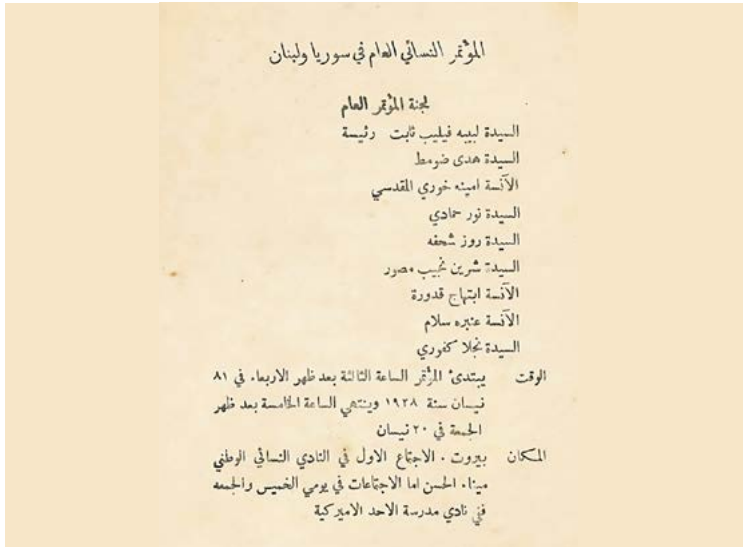 المؤتمر النسائي العام في سوريا ولبنان
لجنة المؤتمر العام
السيدة لبيبه فيليب ثابت رئيسة
السيدة هدى ضومط
الآنسة امينه خوري المقدسي
السيدة نور حمادي
السيدة روز شحفه
السيدة شرين نجيب مصور
الآنسة ابتهاج قدورة
الآنسة عنبره سلام
السيدة نجلا كفوري
الوقت يبتدئ المؤتمر الساعة الثالثة بعد ظهر الاربعاء في ٨١
نيسان سنة ١٩٢٨ وينتهي الساعة الخامسة بعد ظهر
الجمعة في ٢٠ نيسان
المكان بيروت . الاجتماع الاول في النادي النسائي الوطني
ميناء الحسن اما الاجتماعات في يومي الخميس والجمعه
ففي نادي مدرسة الاحد الاميركية